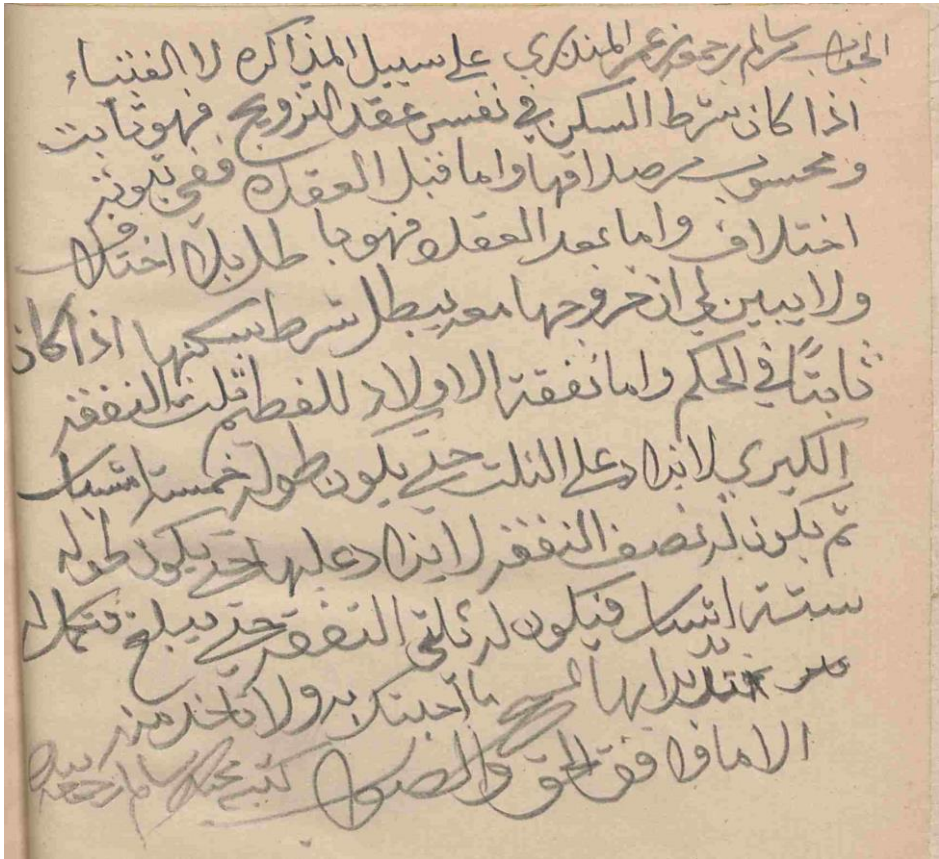 الجواب من سالم بن حمود بن عمر المنذري على سبيل المذاكره لا الفتياء
اذا كان شرط السكن في نفس عقد التزويج فهو ثابت
ومحسوب من صداقها واما قبل العقده ففي ثبوته
اختلاف واما بعد العقده فهو باطل بلا اختلاف
ولا يبين لي ان خروجها معه يبطل شرط سكنها اذا كان
ثابتًا في الحكم واما نفقة الاولاد للفطيم ثلث النفقه
الكبرى لا يزاد على الثلث حتى يكون طوله خمسة اشبار
ثم يكون له نصف النفقه لا يزاد عليها حتى يكون طوله
ستة اشبار فيكون له ثلثي النفقه حتى يبلغ فتكمل له
بها ما اجبتك به ولا تأخذ منه
الا ما وافق الحق والصواب كتبه سالم بن حمود بيده